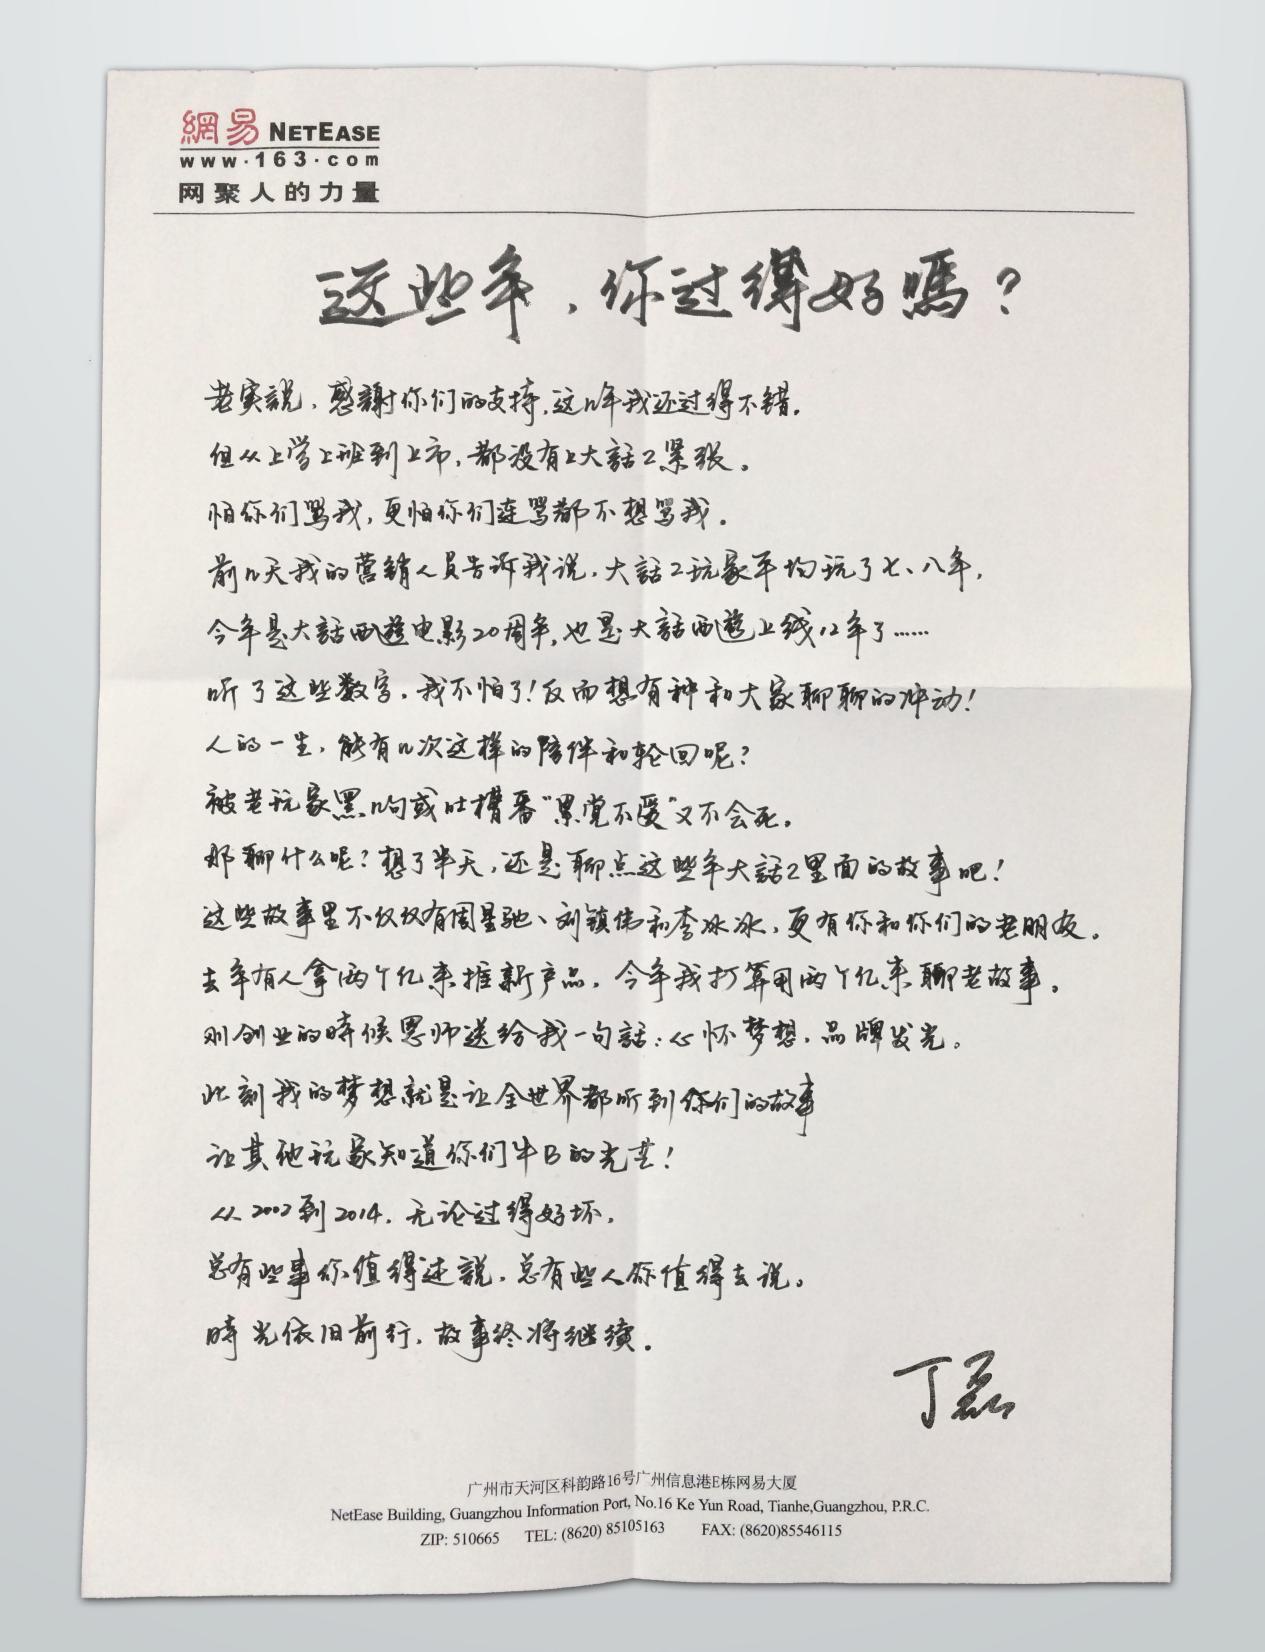 網易 NETEASE
www.163.com
网聚人的力量
这些年，你过得好嗎？
老实説，感謝你们的支持，这几年我还过得不错。
但从上学上班到上市，都没有上大話2紧张。
怕你们骂我，更怕你们连骂都不想骂我。
前几天我的营销人员告诉我说，大話2玩家平均玩了七、八年，
今年是大話西遊电影20周年，也是大話西遊上线12年了……
听了这些数字，我不怕了！反而想有种和大家聊聊的冲动！
人的一生，能有几次这样的陪伴和轮回呢？
被老玩家黑几句或吐槽番“累觉不爱”又不会死。
那聊什么呢？想了半天，还是聊点这些年大話2里面的故事吧！
这些故事里不仅仅有周星驰、刘镇伟和李冰冰，更有你和你们的老朋友。
去年有人拿两个亿来推新产品，今年我打算用两个亿来聊老故事。
刚创业的時候恩师送给我一句話：心怀梦想，品牌发光。
此刻我的梦想就是让全世界都听到你们的故事
让其他玩家知道你们牛B的光芒！
从2002到2014，无论过得好坏，
总有些事你值得述説，总有些人你值得去说。
時光依旧前行，故事终将继续。
丁磊
广州市天河区科韵路16号广州信息港E栋网易大厦
NetEase Building, Guangzhou Information Port, No.16 Ke Yun Road, Tianhe,Guangzhou, P.R.C.
ZIP: 510665 TEL: (8620) 85105163 FAX: (8620)85546115